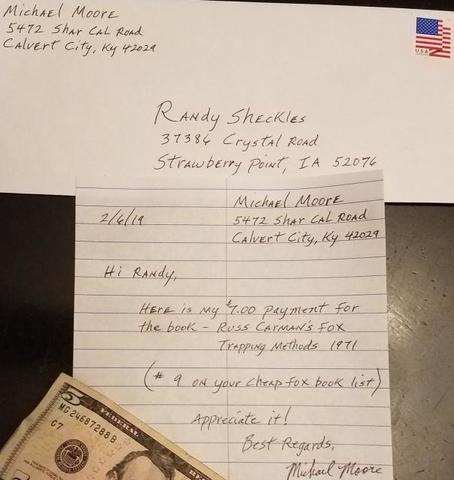 Michael Moore
5472 Shar Cal Road
Calvert City, Ky 42029
USA
Randy Sheckles
37386 Crystal Road
Strawberry Point, IA 52076
Michael Moore
2/6/19
5472 Shar Cal Road
Calvert City, Ky 42029
Hi Randy,
Here is my $7.00 payment for
the book - Russ Carman's Fox
Trapping Methods 1971
(# 9 on your cheap fox book list)
Appreciate it!
Best Regards,
Michael Moore
5
FEDERAL
MG 24687288 B
G7